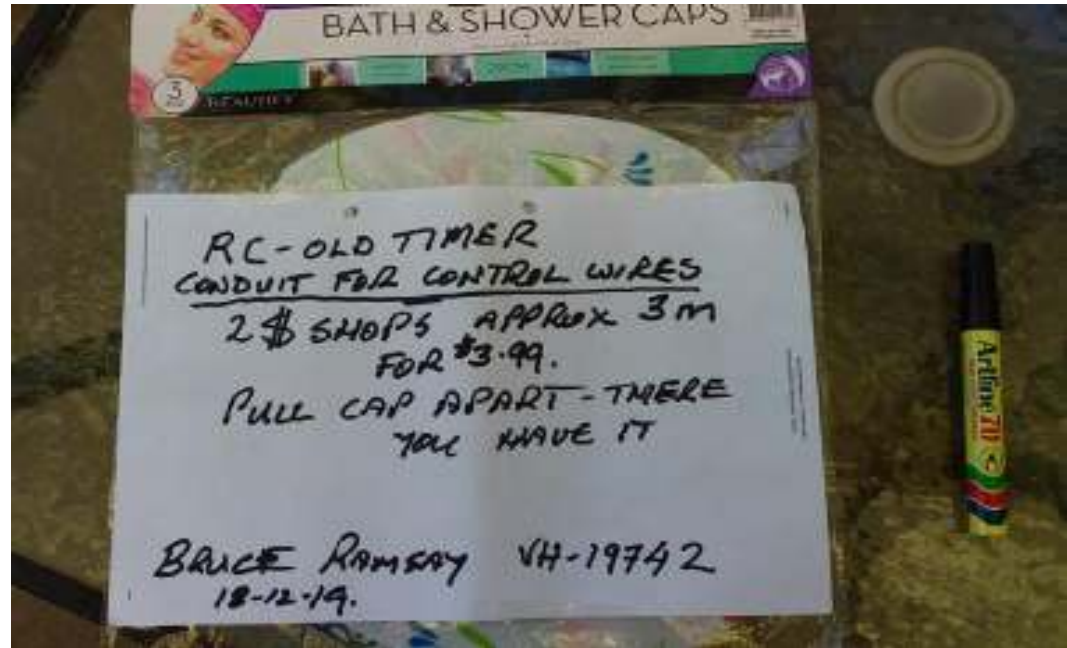 BATH & SHOWER CAPS
3
BEAUTIFY
RC-OLD TIMER
CONDUIT FOR CONTROL WIRES
2$ SHOPS APPROX 3m
FOR $3.99.
PULL CAP APART - THERE
YOU HAVE IT
BRUCE RAMSAY VH-19742
18-12-19.
Artline 70